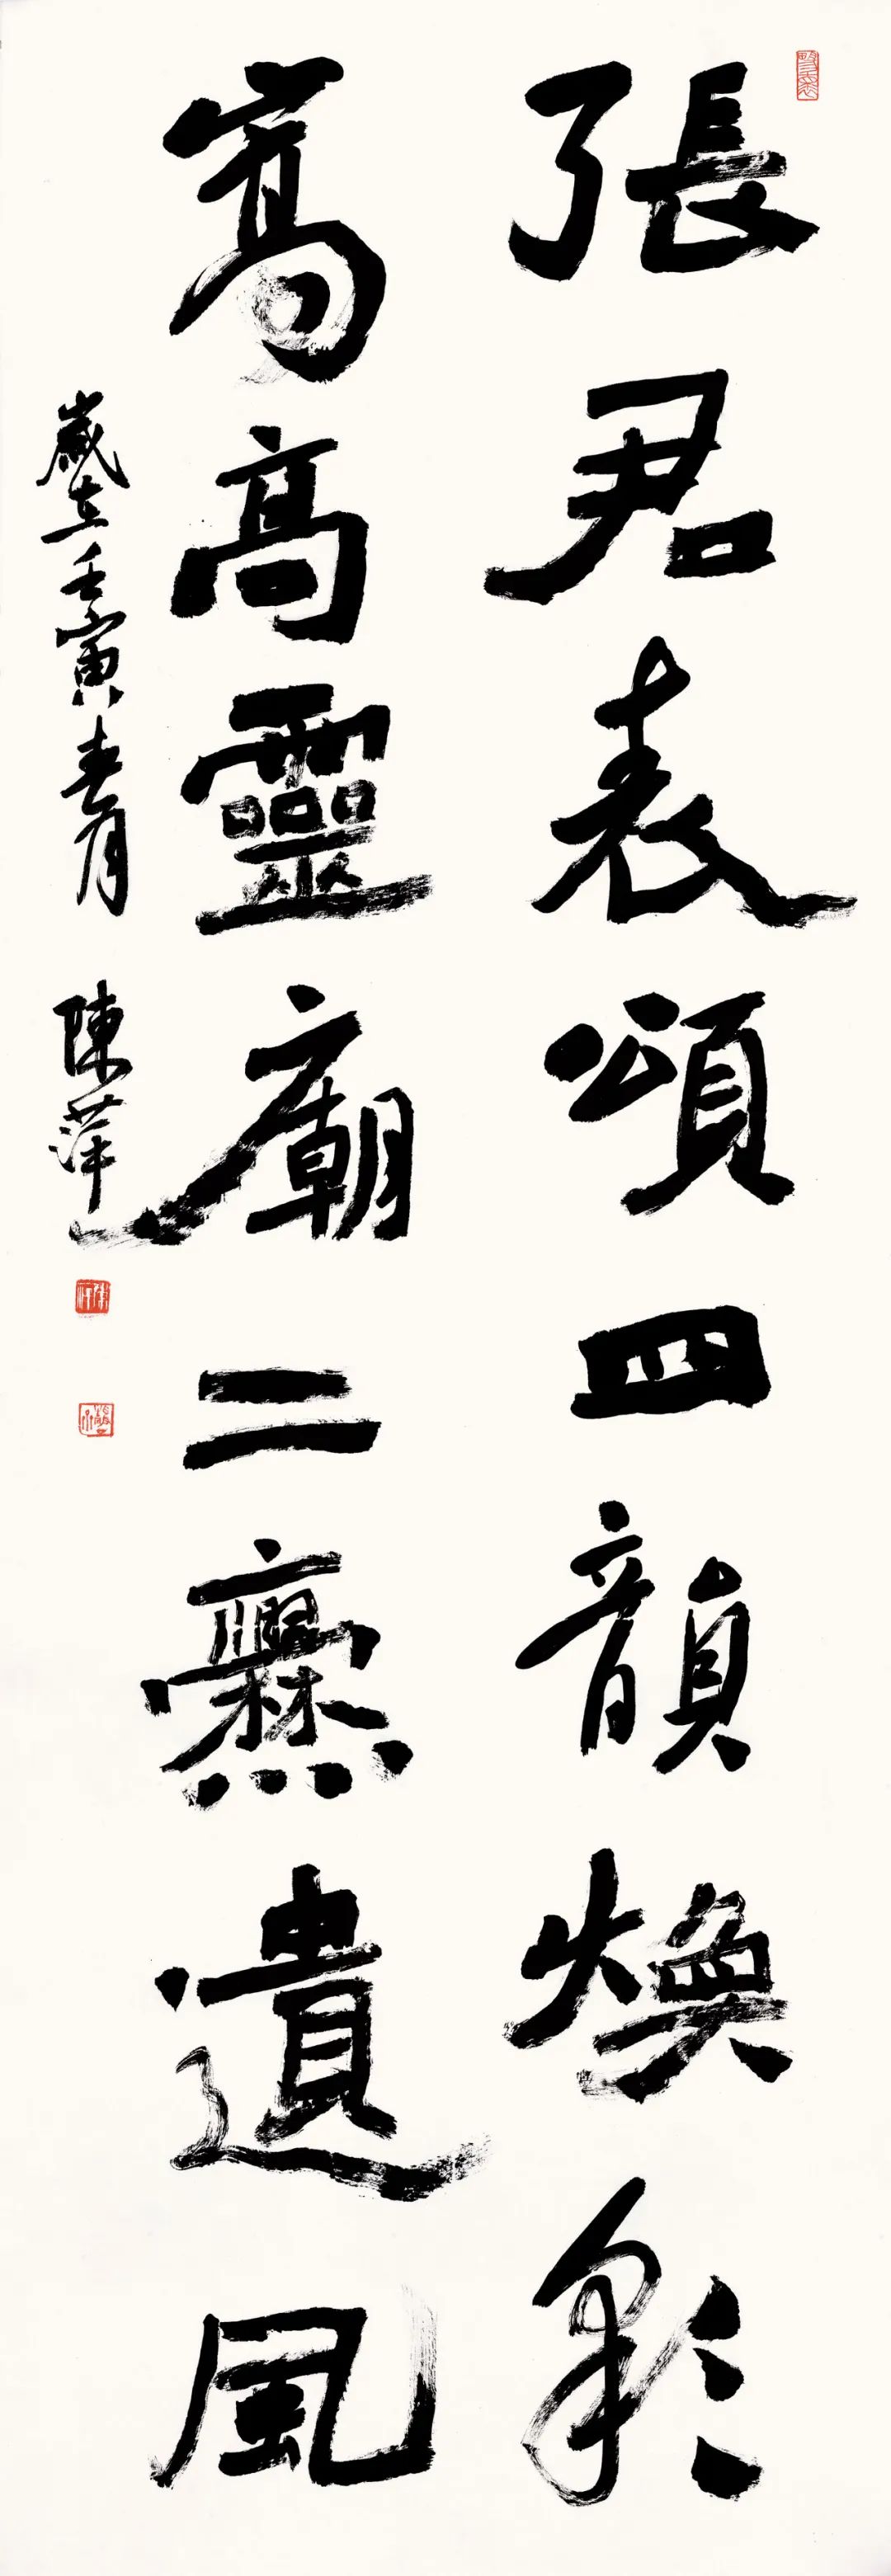 張君表頌四韻煥彩
嵩高靈廟二爨遺風
歲在壬寅春月 陳萍